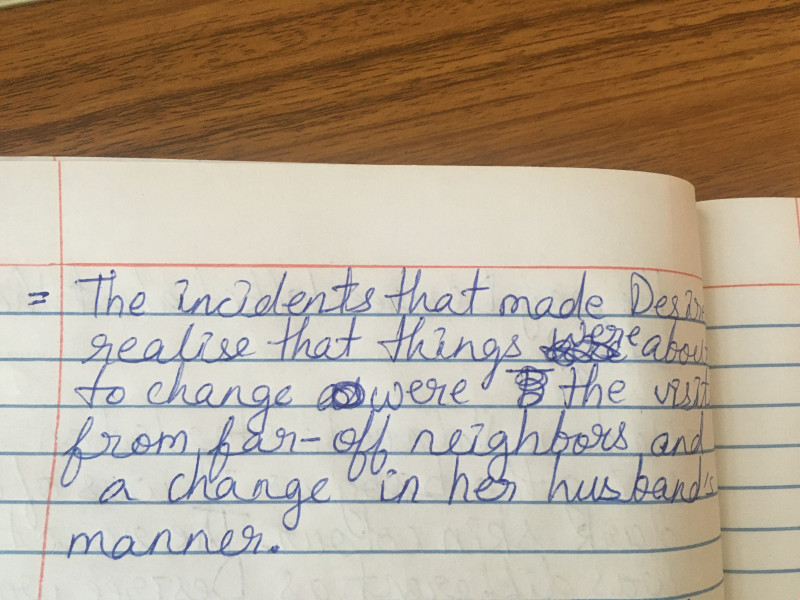 = The incidents that made Desire
realise that things were about
to change were the visit
from far-off neighbors and
a change in her husband's
manner.